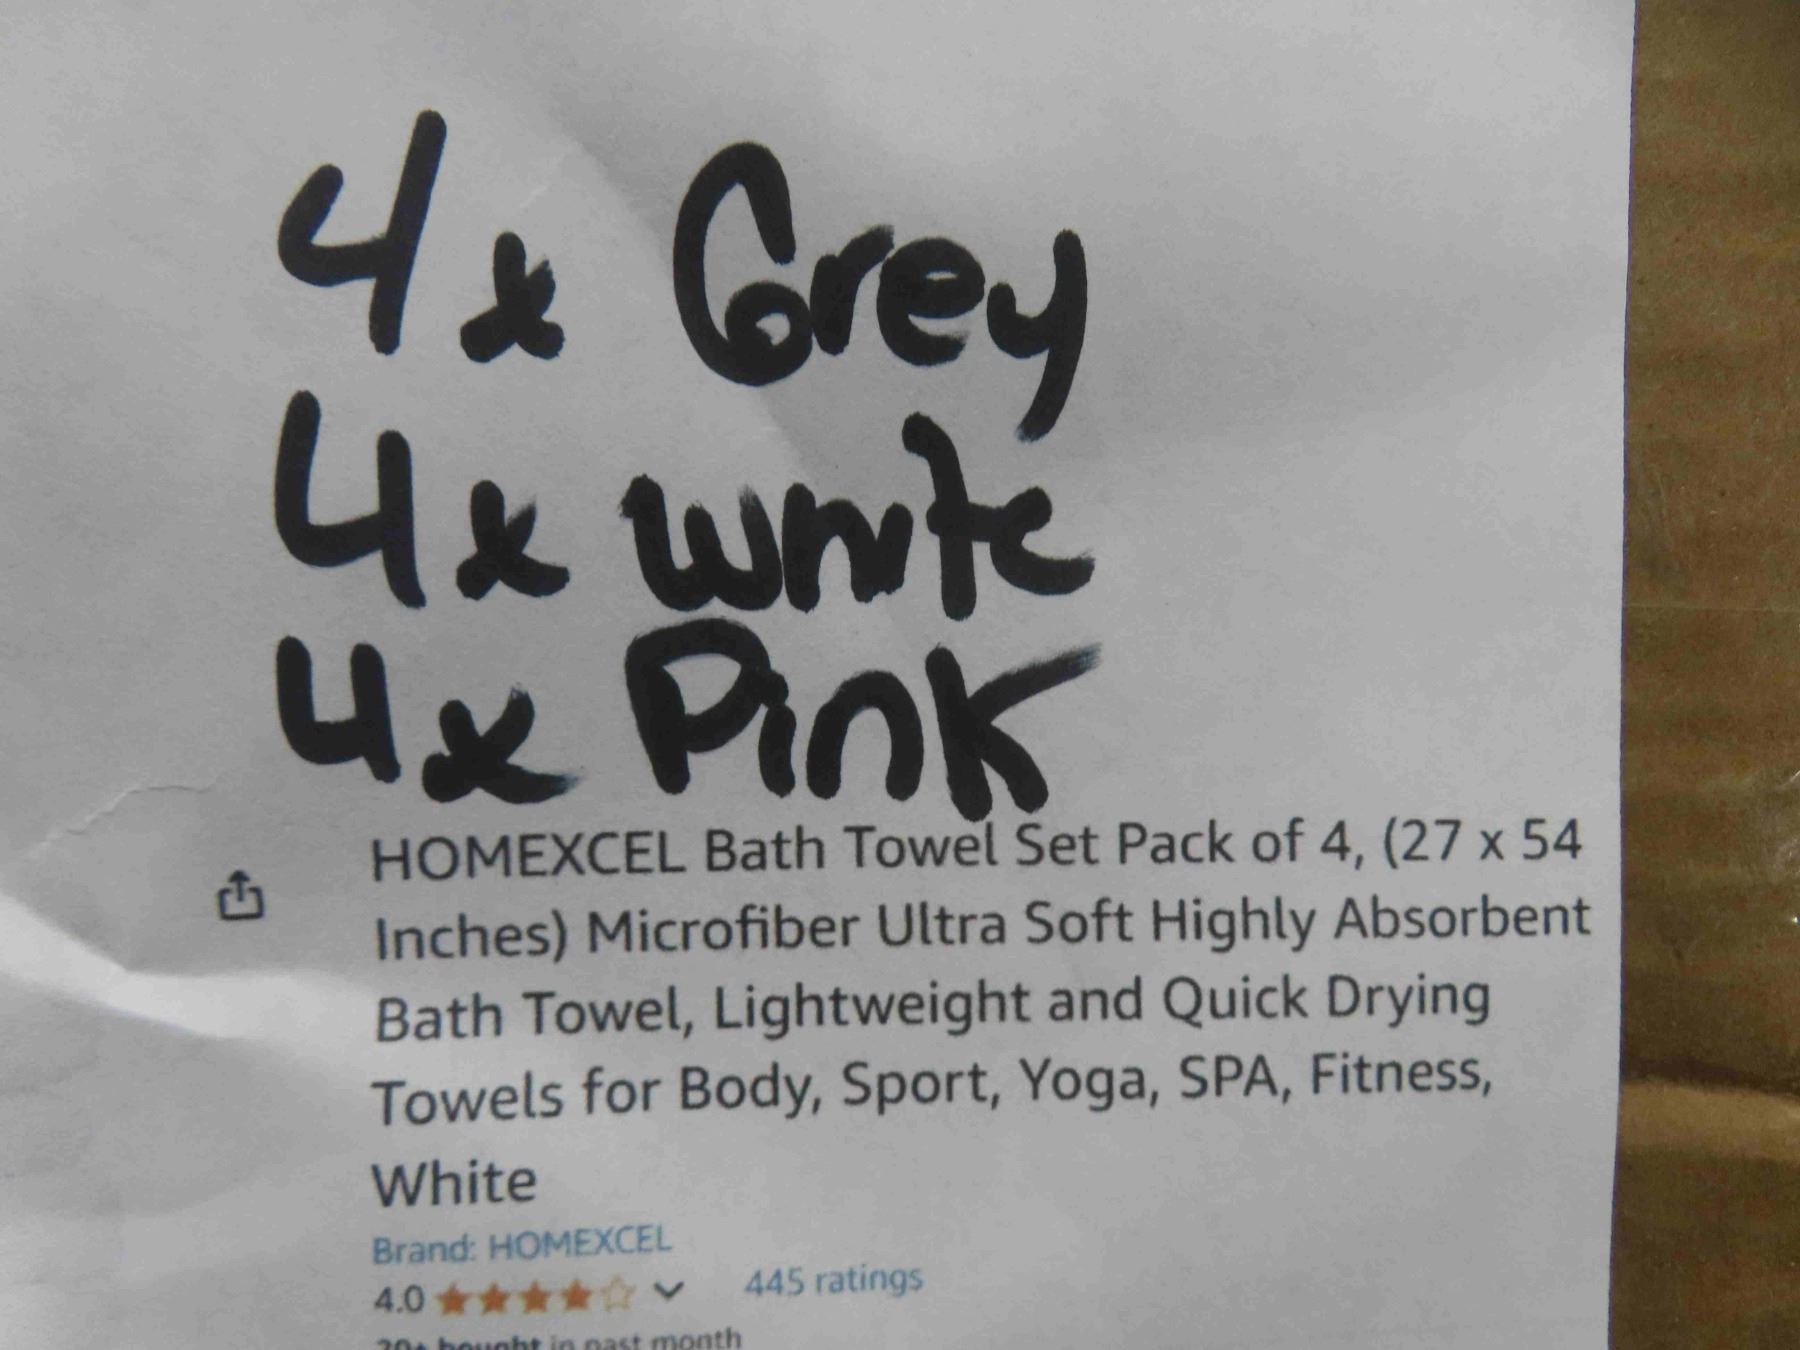 4x Grey
4x white
4x Pink
HOMEXCEL Bath Towel Set Pack of 4, (27 x 54
Inches) Microfiber Ultra Soft Highly Absorbent
Bath Towel, Lightweight and Quick Drying
Towels for Body, Sport, Yoga, SPA, Fitness,
White
Brand: HOMEXCEL
4.0 445 ratings
20+ bought in past month